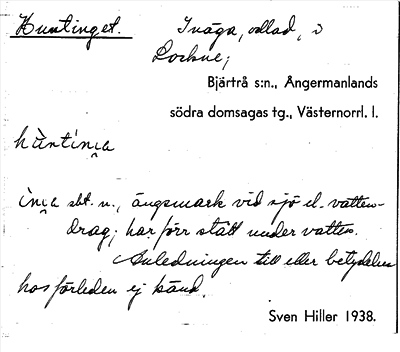 Huntinget. Inäga, odlad, i
Lockne;
Bjärtrå s:n., Ångermanlands
södra domsagas tg., Västernorrl. l.
hùntìnɡa
ìnɡa sbt. n., ängsmark vid sjö el. vatten-
drag; har förr stått under vatten.
Anledningen till eller betydelsen
hos förleden ej känd.
Sven Hiller 1938.